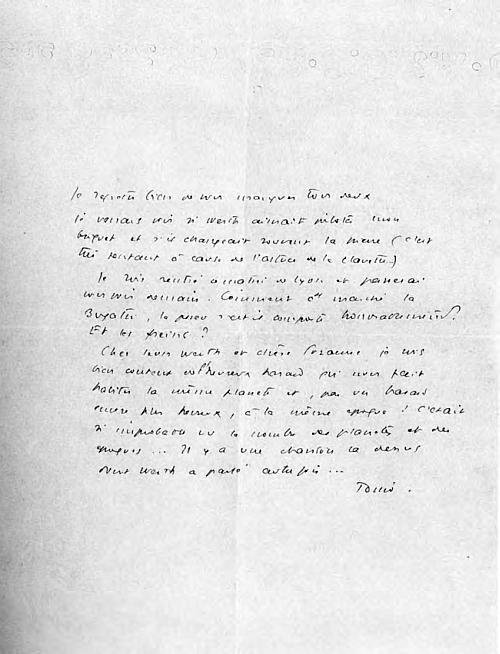 Je regrette bien de vous manquer tous deux
je voulais voir si Werth aimait piloter mon
Breguet et s'il changeait souvent la (c'est
très tentant à cause de l' de la clavette.)
Je suis rentré à matin de Lyon et passerai
vous voir demain. Comment a marché la
Bugatti, le pneu s'est il comporté honorablement?
Et les freins?
Cher Léon Werth et chère Suzanne je suis
bien content de l'heureux hasard qui nous fait
habiter la même planète et, par un hasard
encore plus heureux, à la même époque! c'était
si improbable vu le nombre des planètes et des
époques ... Il y a une chanson là dessus
dont Werth a parlé autrefois ...
Tonio.